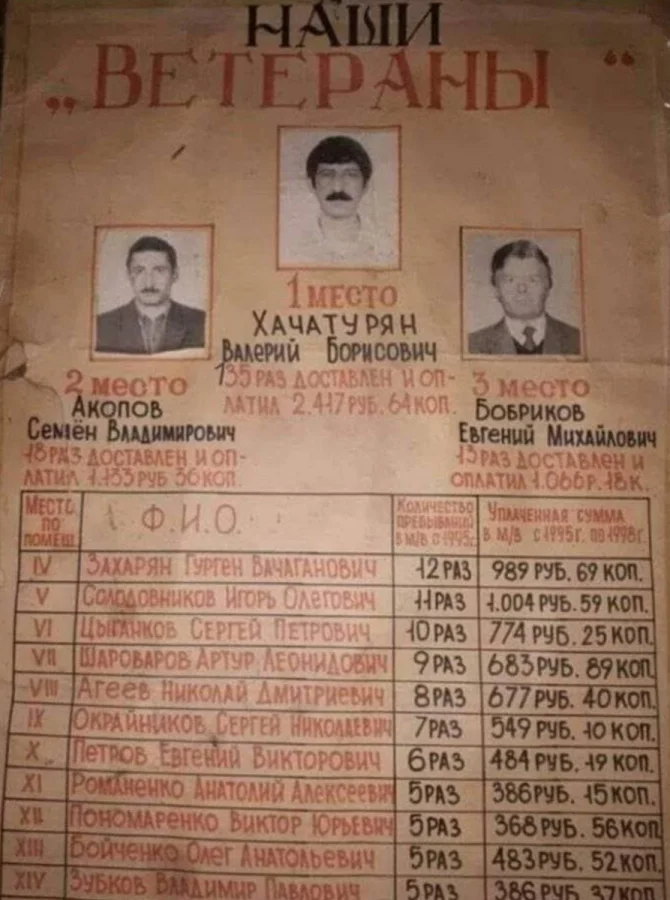 НАШИ
„ВЕТЕРАНЫ“
1 МЕСТО
ХАЧАТУРЯН
ВАЛЕРИЙ БОРИСОВИЧ
135 РАЗ ДОСТАВЛЕН И ОП-
ЛАТИЛ 2.417 РУБ. 64 КОП.
2 МЕСТО
АКОПОВ
СЕМЁН ВЛАДИМИРОВИЧ
18 РАЗ ДОСТАВЛЕН И ОП-
ЛАТИЛ 1.133 РУБ 36 КОП.
3 МЕСТО
БОБРИКОВ
ЕВГЕНИЙ МИХАЙЛОВИЧ
13 РАЗ ДОСТАВЛЕН И
ОПЛАТИЛ 1.066 Р. 18 К.
МЕСТО ПО ПОМЕЩ. Ф.И.О. КОЛИЧЕСТВО ПРЕБЫВАНИЙ В М/В С 1995г. УПЛАЧЕННАЯ СУММА В М/В С 1995г. ПО 1998г.
IV ЗАХАРЯН ГУРГЕН ВАЧАГАНОВИЧ 12 РАЗ 989 РУБ. 69 КОП.
V СОЛОДОВНИКОВ ИГОРЬ ОЛЕГОВИЧ 11 РАЗ 1.004 РУБ. 59 КОП.
VI ЦЫГАНКОВ СЕРГЕЙ ПЕТРОВИЧ 10 РАЗ 774 РУБ. 25 КОП.
VII ШАРОВАРОВ АРТУР ЛЕОНИДОВИЧ 9 РАЗ 683 РУБ. 89 КОП.
VIII АГЕЕВ НИКОЛАЙ ДМИТРИЕВИЧ 8 РАЗ 677 РУБ. 40 КОП.
IX ОКРАЙНИКОВ СЕРГЕЙ НИКОЛАЕВИЧ 7 РАЗ 549 РУБ. 10 КОП.
X ПЕТРОВ ЕВГЕНИЙ ВИКТОРОВИЧ 6 РАЗ 484 РУБ. 19 КОП.
XI РОМАНЕНКО АНАТОЛИЙ АЛЕКСЕЕВИЧ 5 РАЗ 386 РУБ. 15 КОП.
XII ПОНОМАРЕНКО ВИКТОР ЮРЬЕВИЧ 5 РАЗ 368 РУБ. 56 КОП
XIII БОЙЧЕНКО ОЛЕГ АНАТОЛЬЕВИЧ 5 РАЗ 483 РУБ. 52 КОП.
XIV ЗУБКОВ ВЛАДИМИР ПАВЛОВИЧ 5 РАЗ 386 РУБ 37 КОП.